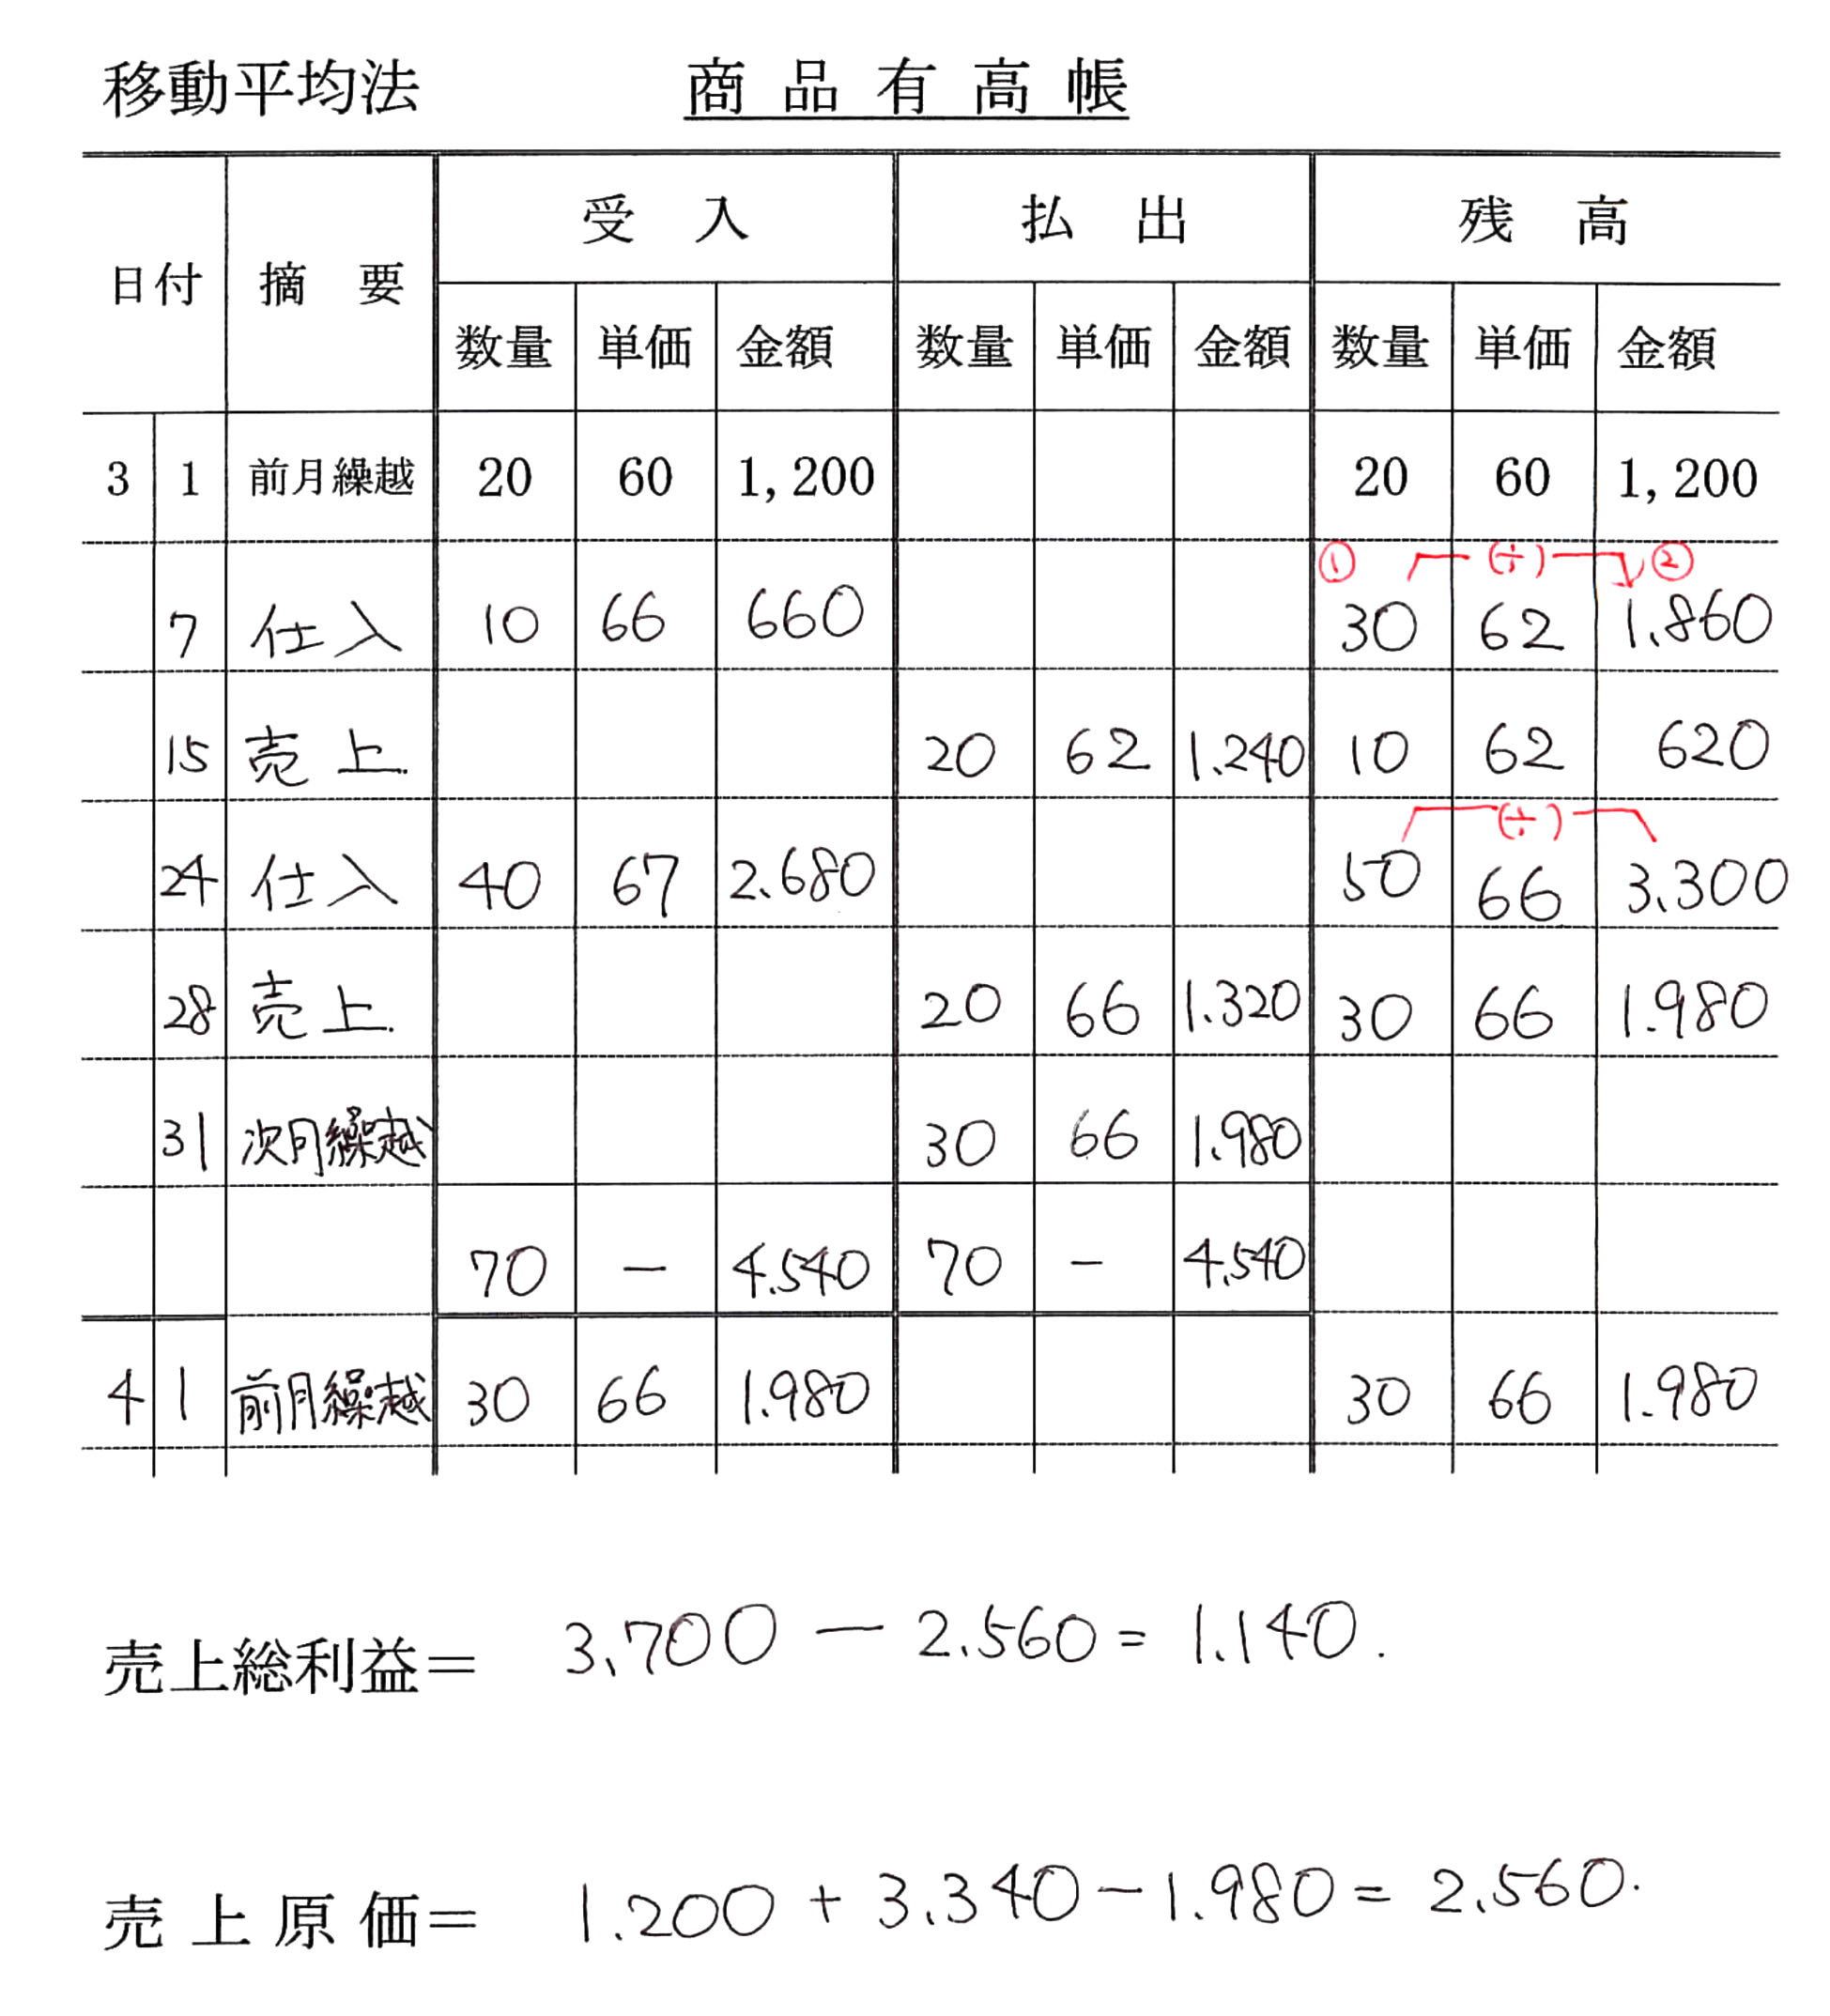 移動平均法 商品有高帳
受入 払出 残高
日付 摘要
数量 単価 金額 数量 単価 金額 数量 単価 金額
3 1 前月繰越 20 60 1,200 20 60 1,200
① (÷) ②
7 仕入 10 66 660 30 62 1.860
15 売上 20 62 1.240 10 62 620
(÷)
24 仕入 40 67 2.680 50 66 3.300
28 売上 20 66 1.320 30 66 1.980
31 次月繰越 30 66 1.980
70 - 4.540 70 - 4.540
4 1 前月繰越 30 66 1.980 30 66 1.980
売上総利益= 3.700 - 2.560 = 1.140.
売上原価= 1.200 + 3.340 - 1.980 = 2.560.